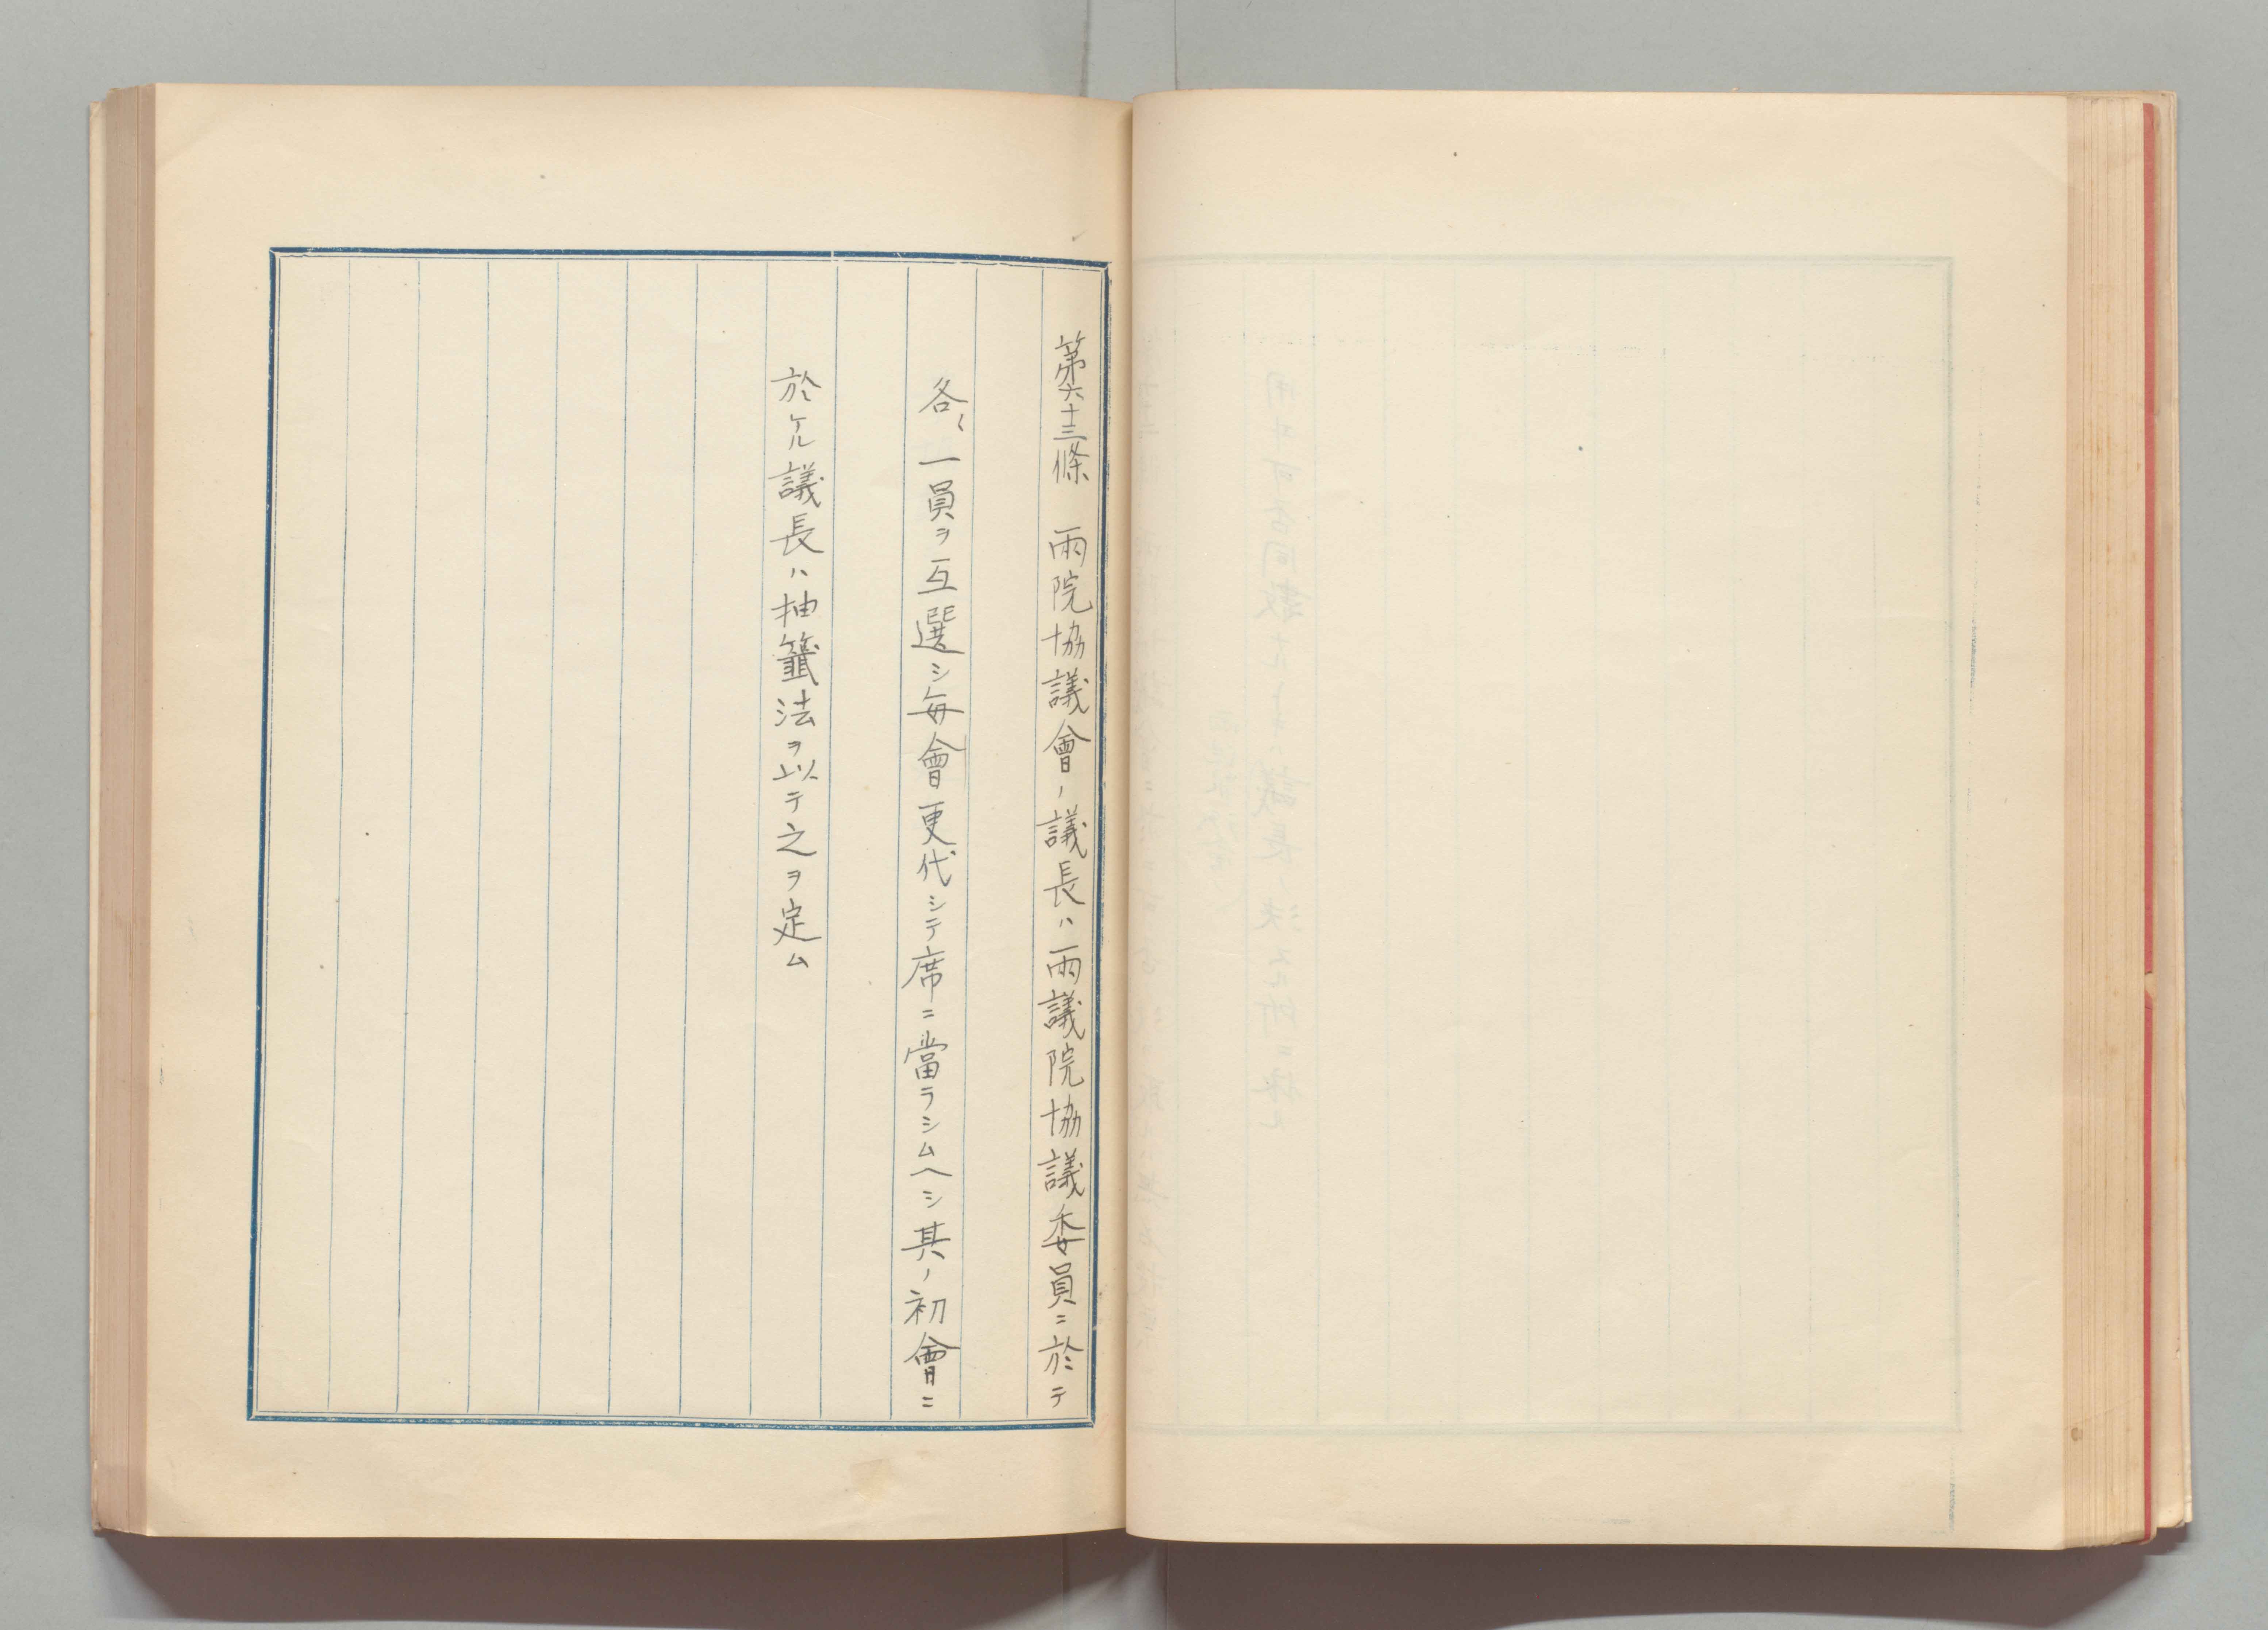 第六十三條　兩院協議會ノ議長ハ兩議院協議委員ニ於テ
各〻一員ヲ互選シ每會更代シテ席ニ當ラシムヘシ其ノ初會ニ
於ケル議長ハ抽籤法ヲ以テ之ヲ定ム